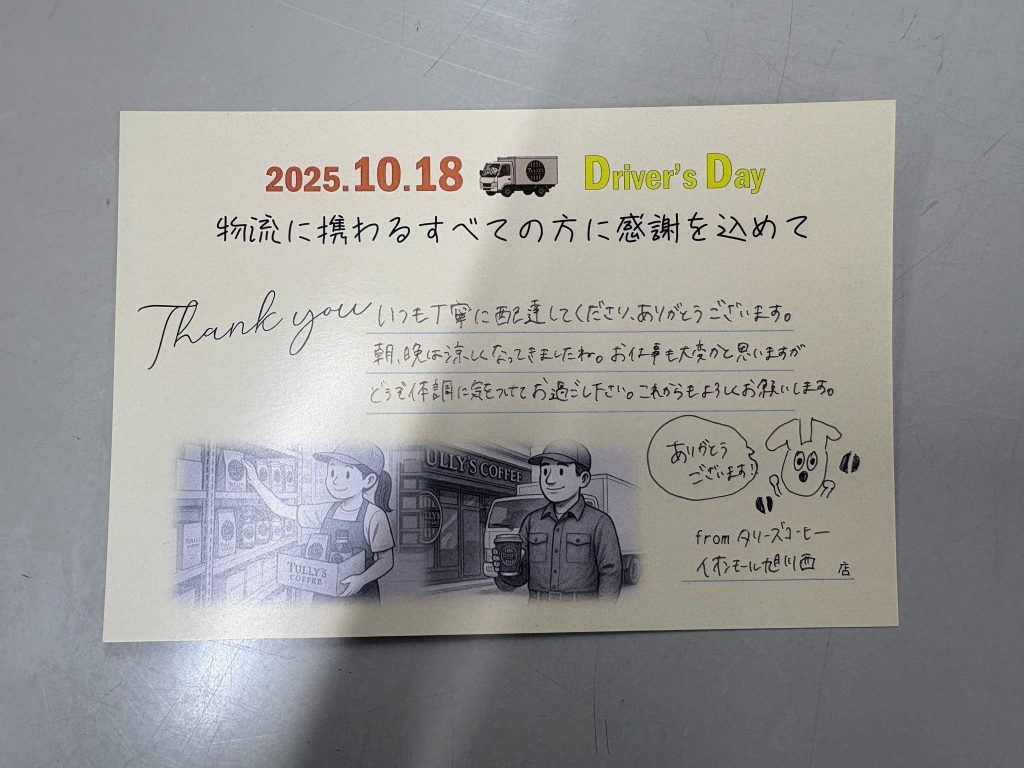 2025.10.18 Driver's Day
物流に携わるすべての方に感謝を込めて
Thank you
いつも丁寧に配達してくださり、ありがとうございます。
朝、晩は涼しくなってきましたね。お仕事も大変かと思いますが
どうぞ体調に気をつけてお過ごし下さい。これからもよろしくお願いします。
ありがとう
ございます!
TULLY'S
COFFEE
ULLY'S COFFEE
from タリーズコーヒー
イオンモール旭川西 店